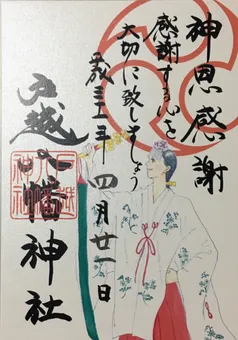 神恩感謝
感謝する心を
大切に致しましょう
歳三十一年四月廿一日
戸越八幡神社
戸越
八幡
神社